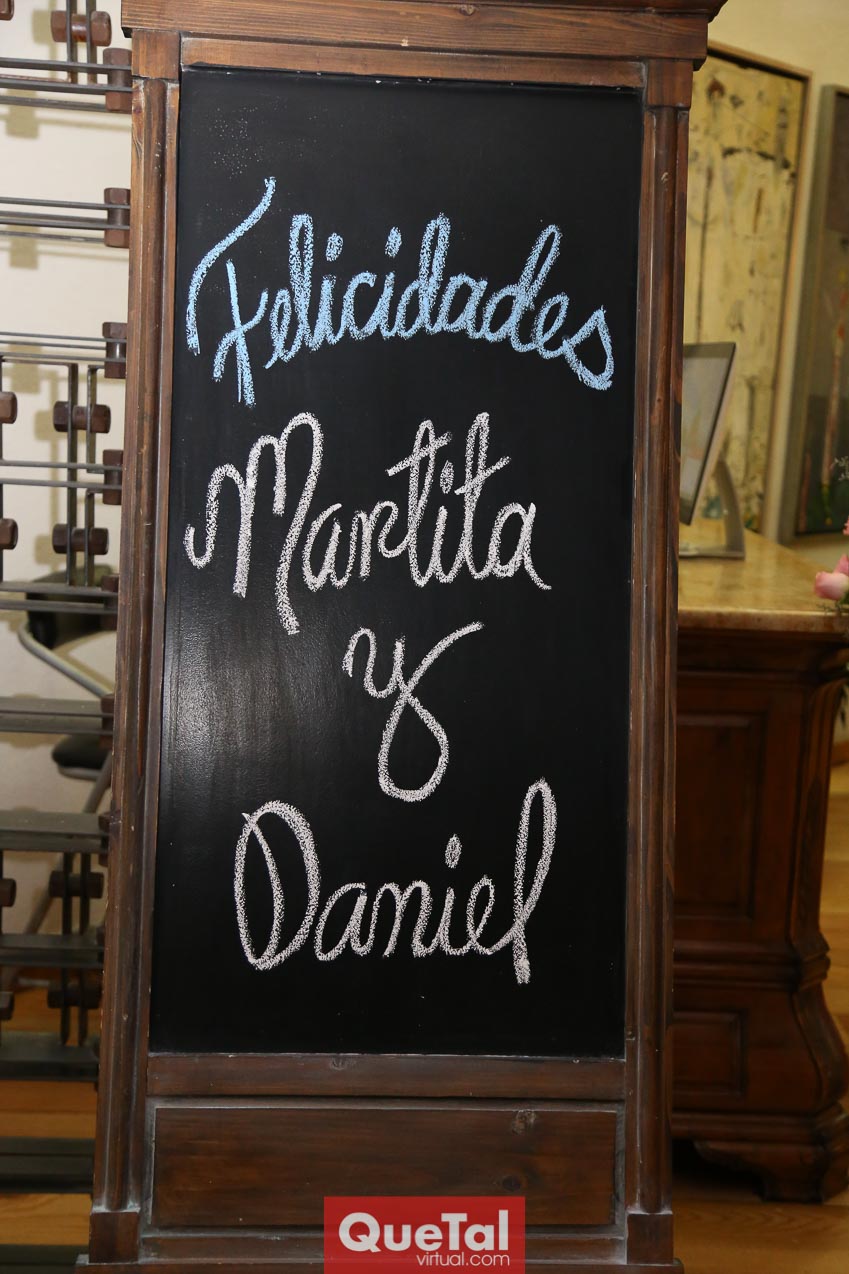 Felicidades
Martita
y
Daniel
QueTal
virtual.com